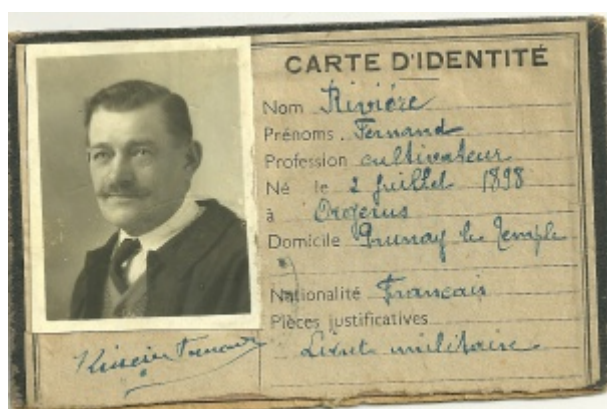 CARTE D'IDENTITÉ
Nom Rivière
Prénoms Fernand
Profession cultivateur
Né le 2 Juillet 1898
à Orgerus
Domicile Prunay le Temple
Nationalité Francais
Pièces justificatives
Livret militaire
Rivière Fernand